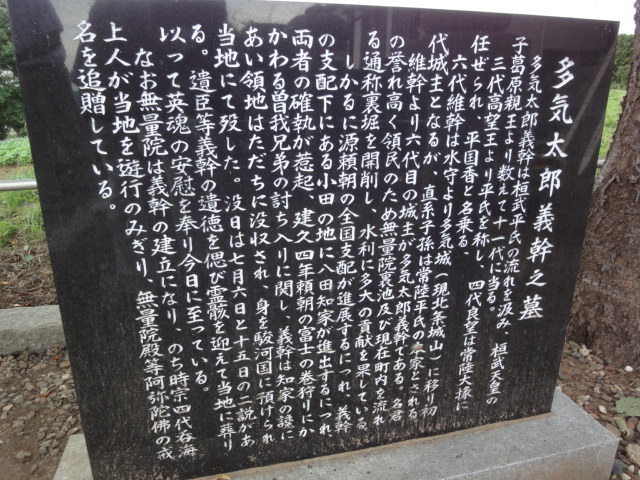 多気太郎義幹之墓
多気太郎義幹は桓武平氏の流れを汲み、桓武天皇の
子葛原親王より数えて十一代に当る。
三代高望王より平氏を称し、四代良望は常陸大掾に
任ぜられ、平国香と名乗る。
六代維幹は水守より多気城(現北条城山)に移り初
代城主となるが、直系子孫は常陸平氏の本宗とされる
維幹より六代目の城主が多気太郎義幹である。名君
の誉れ高く領民のため無量院裏池及び現在町内を流れ
る通称裏堀を開削し、水利に多大の貢献を果している。
しかるに源頼朝の全国支配が進展するにつれ、義幹
の支配下にある小田の地に八田知家が進出するにつれ、
両者の確執が惹起、建久四年頼朝の富士の巻狩りにか
かわる曽我兄弟の討ち入りに関し、義幹は知家の讒に
あい領地はただちに没収され、身を駿河国に預けられ
当地にて歿した。没日は七月六日と十五日の二説があ
る。遺臣等義幹の遺徳を偲び霊骸を迎えて当地に葬り
以って英魂の安慰を奉り今日に至っている。
なお無量院は義幹の建立になり、のち時宗四代呑海
上人が当地を遊行のみぎり、無量院殿等阿弥陀佛の戒
名を追贈している。